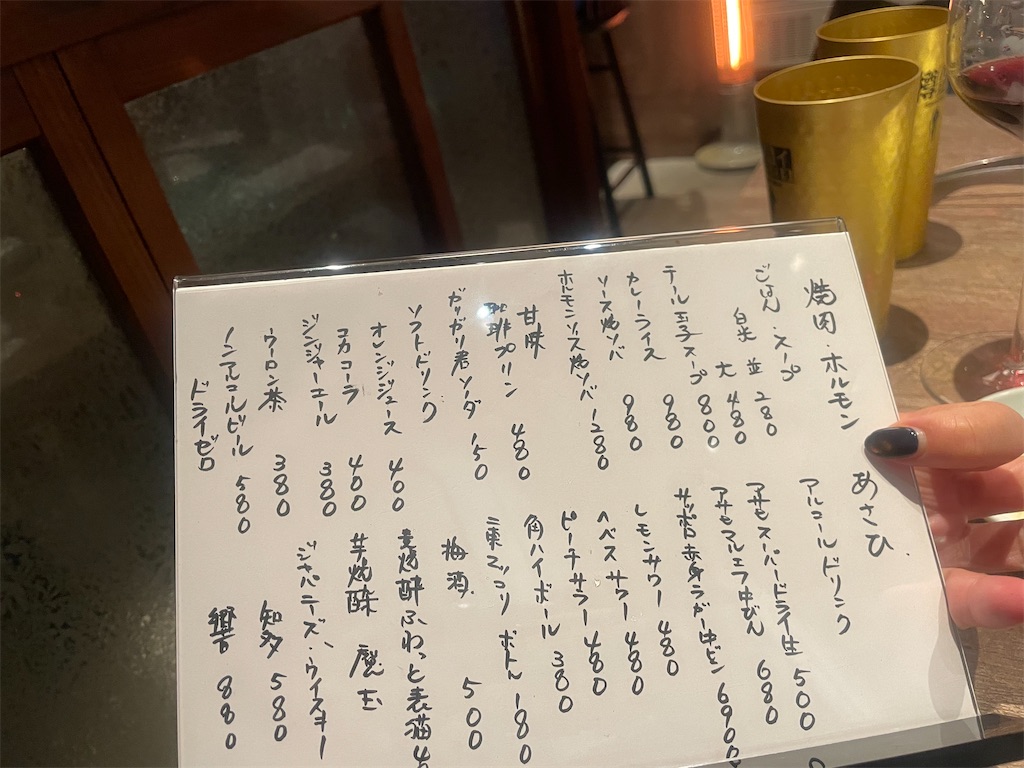 焼肉・ホルモン あさひ
ごはん・スープ
白米 並 280
大 480
テール玉子スープ 800
カレーライス 980
ソース焼ソバ 980
ホルモンソース焼ソバ 1280
甘味
珈琲プリン 480
ガリガリ君ソーダ 150
ソフトドリンク
オレンジジュース 400
コカコーラ 400
ジンジャーエール 380
ウーロン茶 380
ノンアルコールビール 580
ドライゼロ
アルコールドリンク
アサヒスーパードライ生 500
アサヒマルエフ中びん 680
サッポロ赤星ラガー中ビン 690
レモンサワー 480
ヘベスサワー 480
ピーチサワー 480
角ハイボール 380
二東マッコリ ボトル 180
梅酒 500
麦焼酎 ふわっと表猫 4
芋焼酎 魔王
ジャパニーズ・ウイスキー
知多 580
響 880